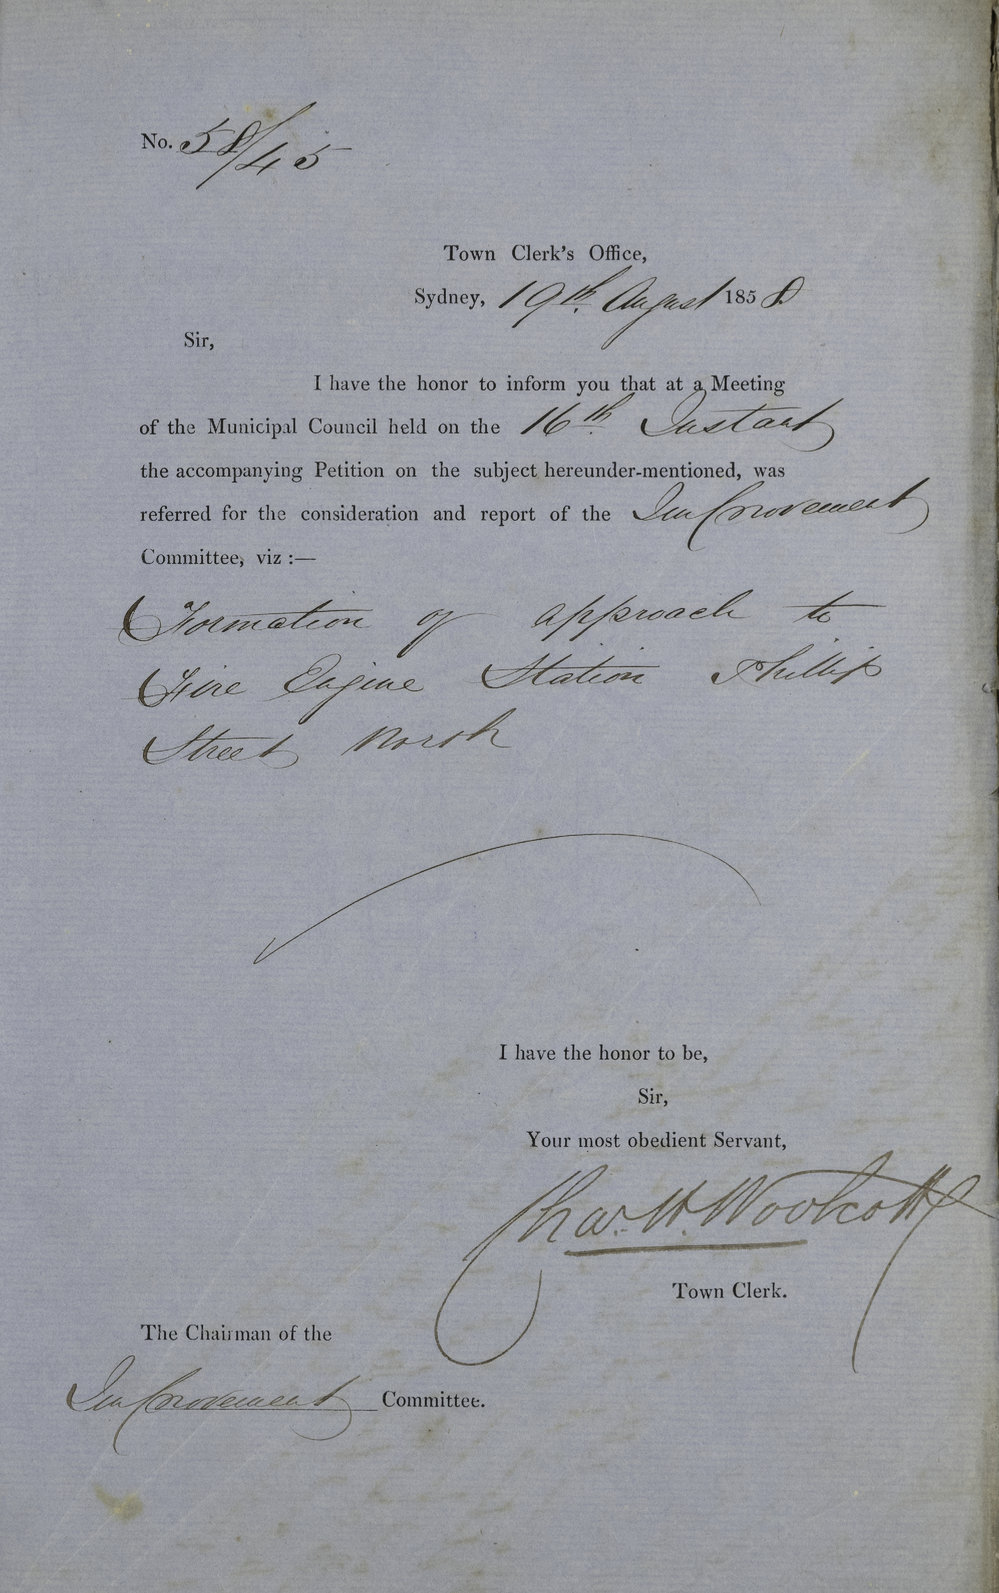 No. 58/45
Town Clerk's Office,
Sydney, 19th. August 1858
Sir,
I have the honor to inform you that at a Meeting
of the Municipal Council held on the 16th. Instant
the accompanying Petition on the subject hereunder-mentioned, was
referred for the consideration and report of the Improvement
Committee, viz :—
Formation of approach to
Fire Engine Station Phillip
Street North
I have the honor to be,
Sir,
Your most obedient Servant,
Chas. H. Woolcott
Town Clerk.
The Chairman of the
Improvement Committee.